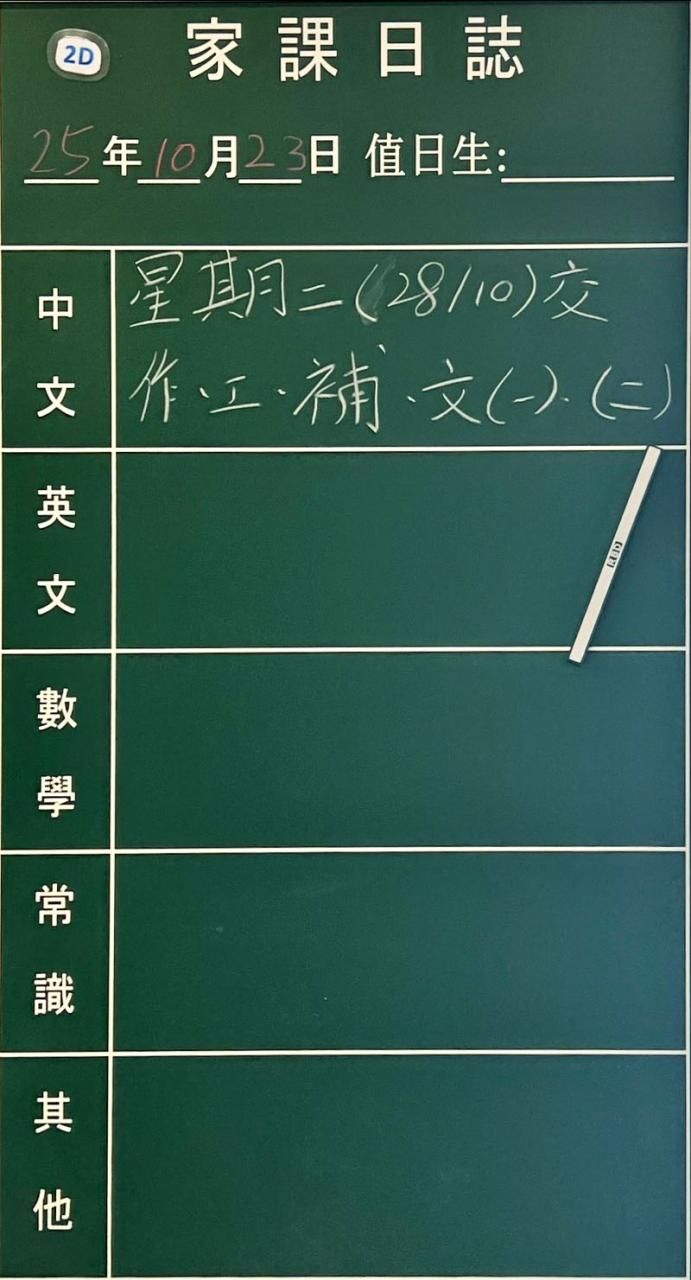 2D
家課日誌
25年10月23日 值日生:
中文
星期二(28/10)交
作.工.補.文(一).(二)
英文
數學
常識
其他